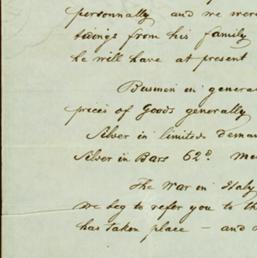 personnally and we were
saings from his family
he will have at present
Busmen in general
prices of Goods generally
Silver in limited deman
Silver in Bars 62d. Me
The War in Italy
we beg to refer you to th
has taken place – and